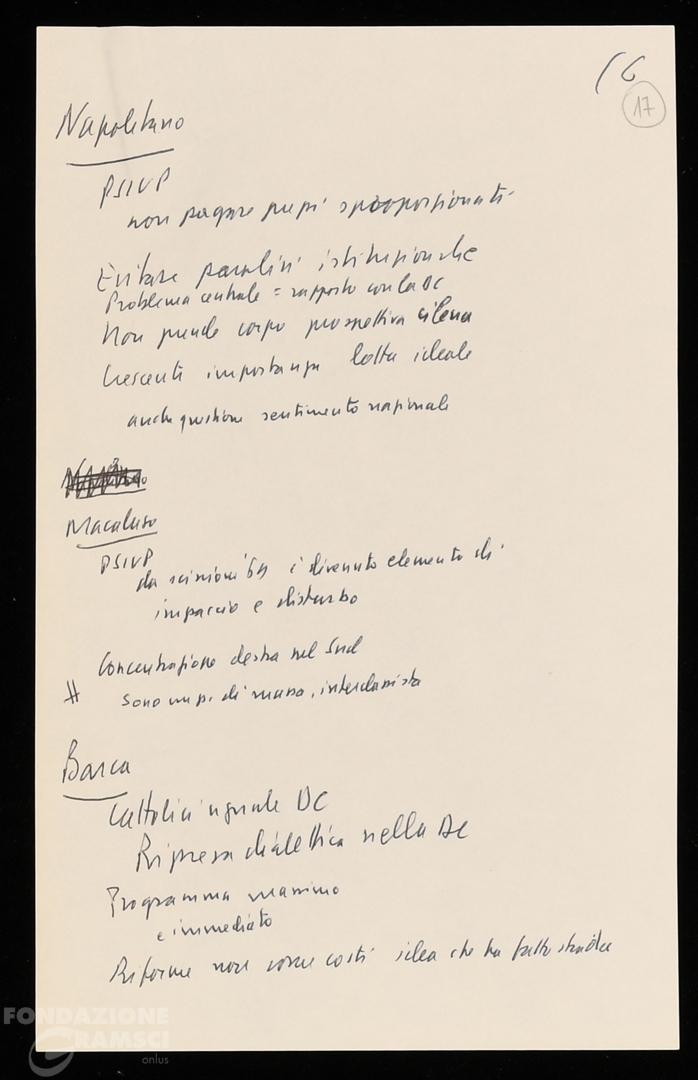 16
17
Napolitano
PSIUP
non pagare prezzi sproporzionati
Evitare paralisi istituzionale
Problema centrale = rapporto con la DC
Non prende corpo prospettiva cilena
Crescente importanza lotta ideale
anche questione sentimento nazionale
Macaluso
PSIUP
da scissione '64 è divenuto elemento di
impaccio e disturbo
Concentrazione destra nel Sud
# sono un p. di massa, interclassista
Barca
Cattolici uguale DC
Ripresa dialettica nella DC
Programma massimo
e immediato
Riforme non come costi idea che ha fatto strada
FONDAZIONE
GRAMSCI
onlus